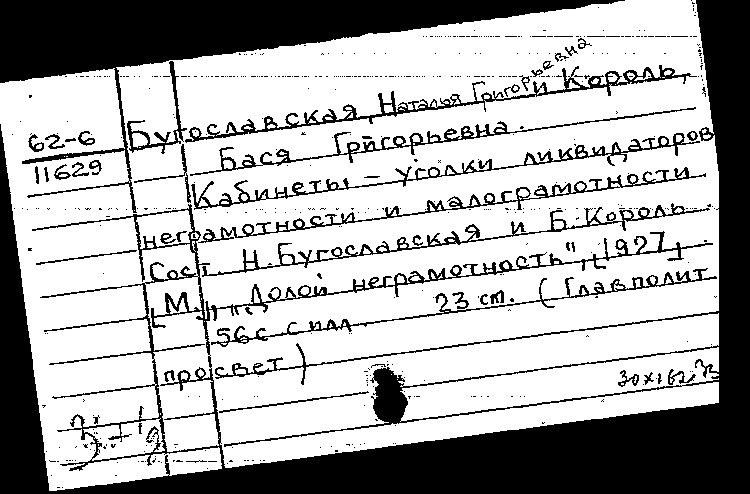 62-6
11629
Бугославская, Наталья Григорьевна и Король,
Бася Григорьевна.
Кабинеты – уголки ликвидаторов
неграмотности и малограмотности
Сост. Н. Бугославская и Б. Король.
[М.], "Долой неграмотность", [1927].
56с с илл. 23 cm. (Главполит
просвет)